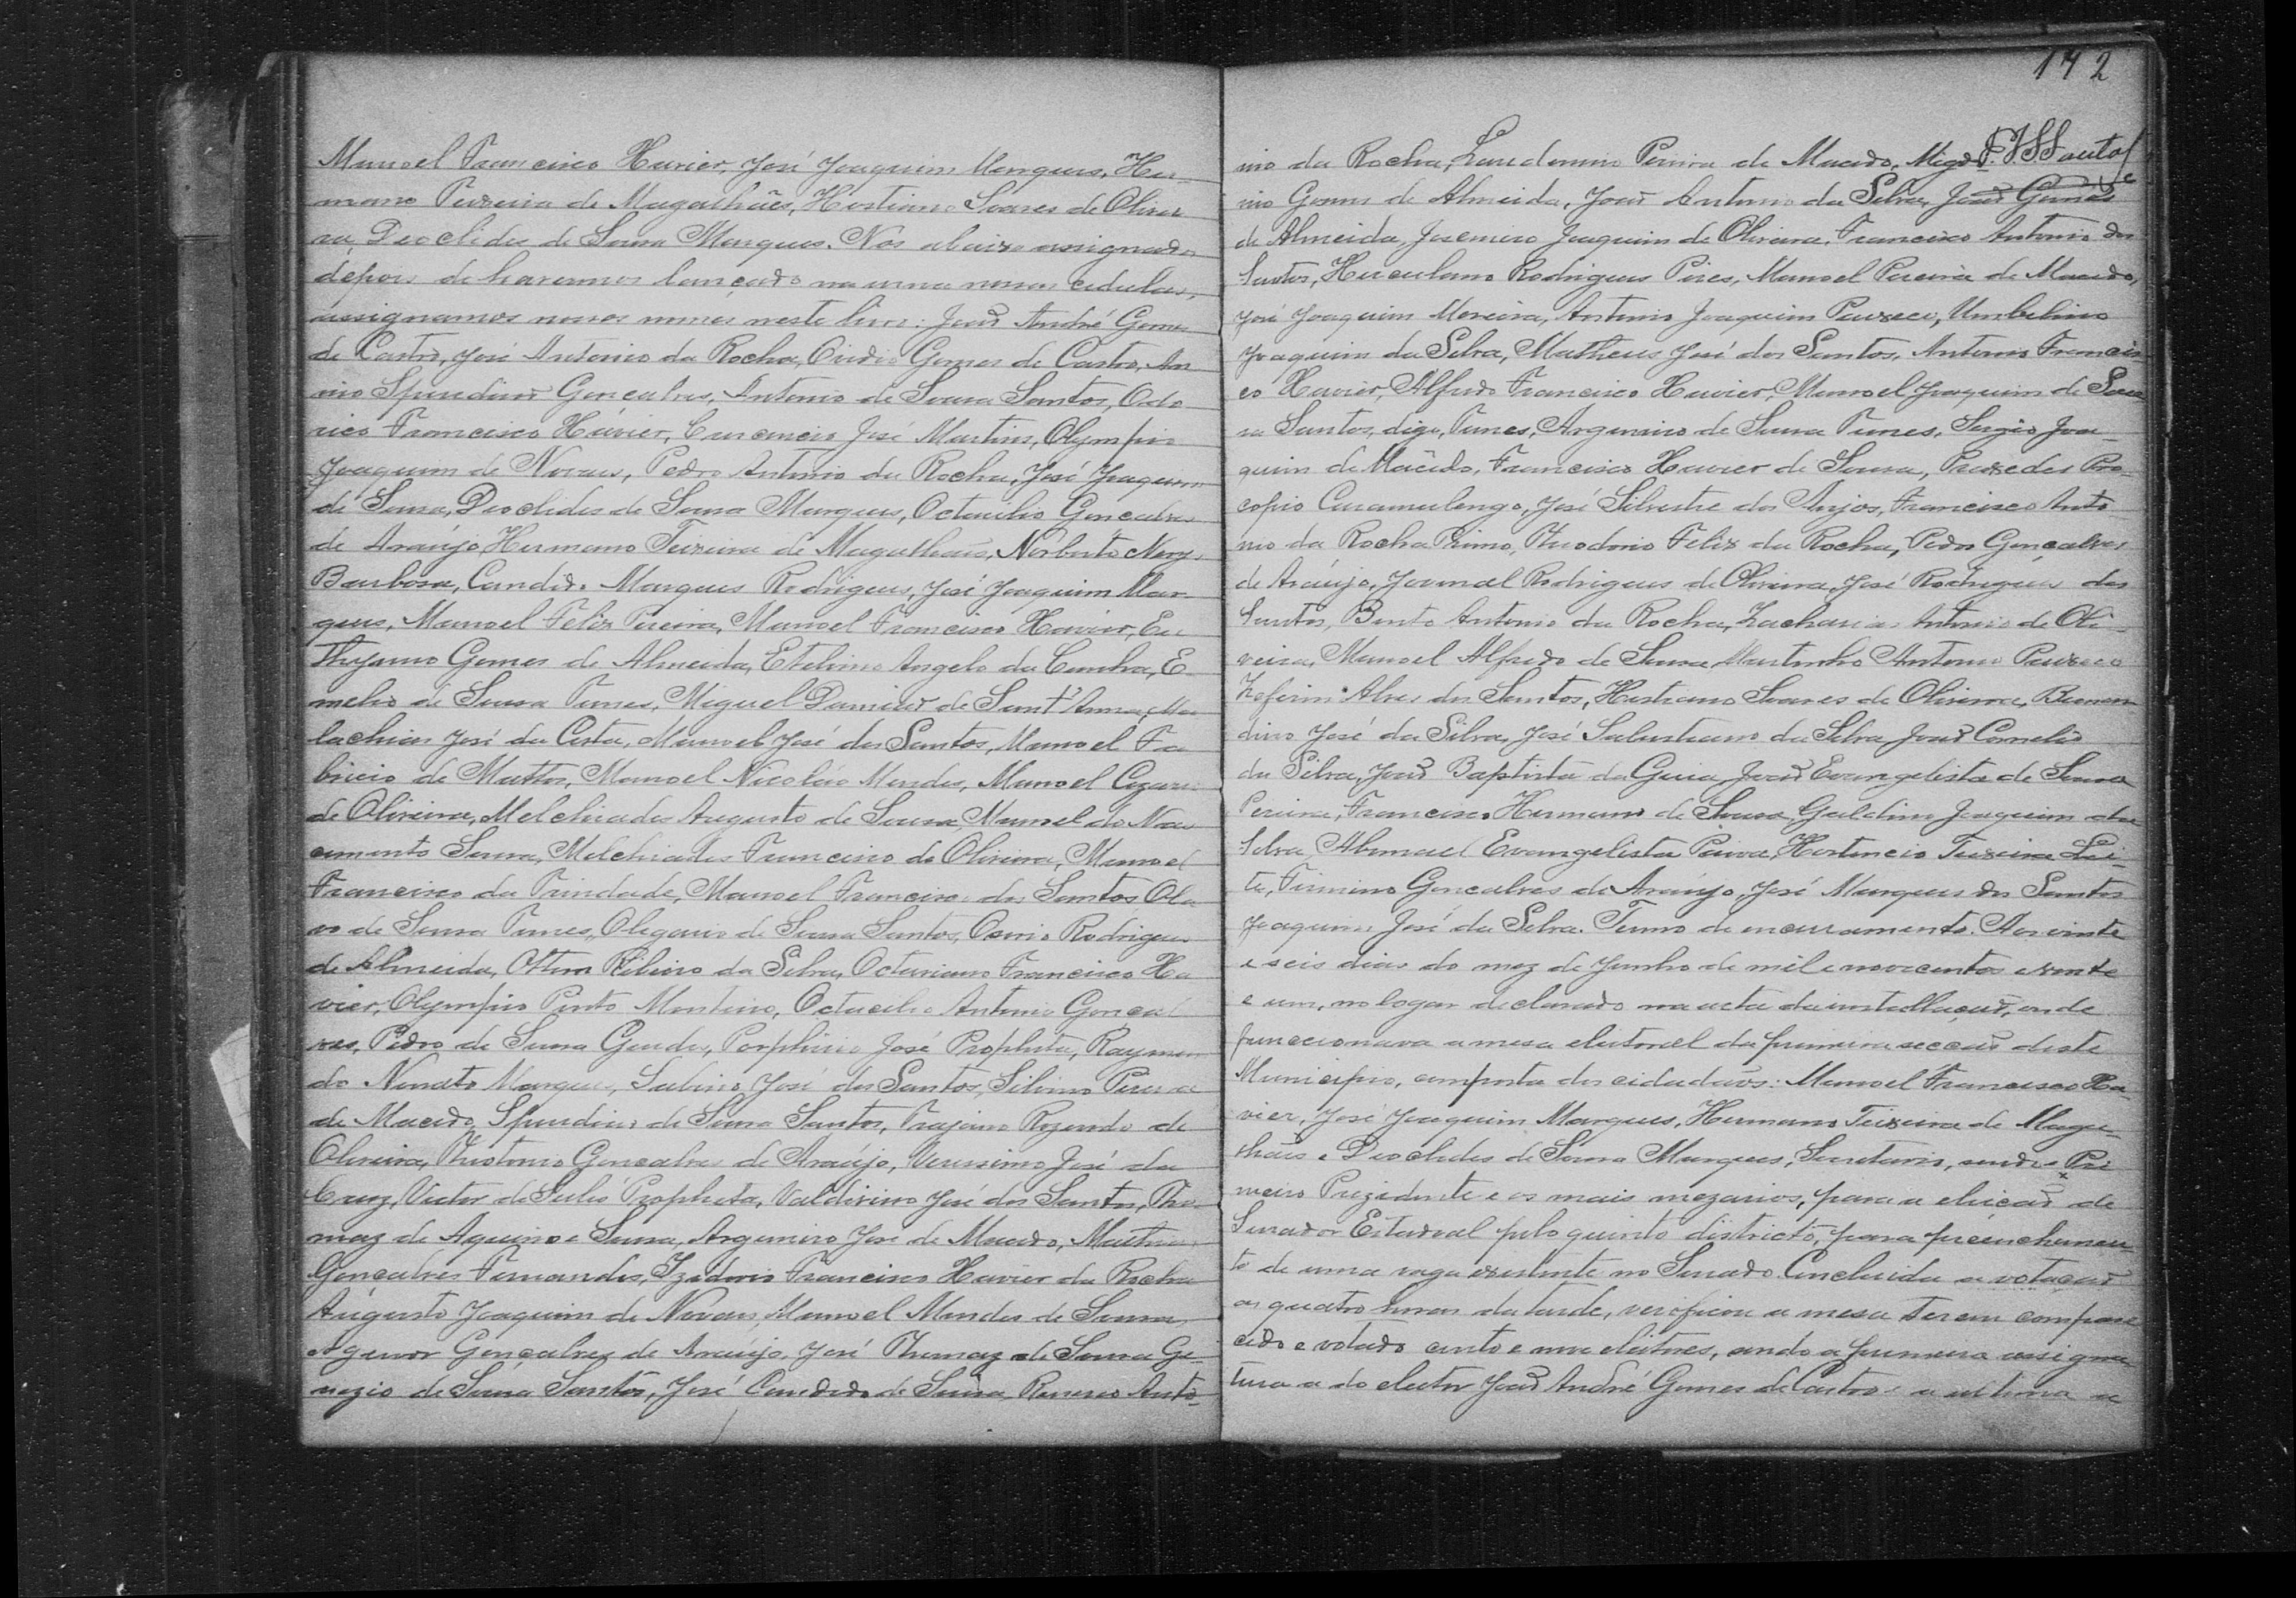 Manoel Francisco Havier, José Joaquim Marques, Her-
mano Teixeira de Magalhães, Hostiano Soares de Olivei
ra, Deoclides de Sousa Marques. Nós abaixo assignados
depois de havermos lançado na urna nossas cedulas,
assignamos nossos nomes neste livro: Joaõ André Gomes
de Castro, José Antonio da Rocha, Ovidio Gomes de Castro, An
nio Spiridiaõ Goncalves, Antonio de Sousa Santos, Odo
rico Francisco Havier, Crescencio José Martins, Olympio
Joaquim de Novaes, Pedro Antonio da Rocha, José Joaquim
de Sousa, Deoclides de Sousa Marques, Octacilio Goncalves
de Araújo, Hermano Teixeira de Magalhaẽs, Norberto Nery
Barbosa, Candido Marques Rodrigues, José Joaquim Mar-
ques, Manoel Felix Pereira, Manoel Francisco Havier, Eu
thymio Gomes de Almeida, Etelvino Angelo da Cunha, E
melio de Sousa Tunes, Miguel Damiaõ de Sant'Anna, Ma
lachias José da Costa, Manoel José dos Santos, Manoel Fa
bricio de Mattos, Manoel Nicoláo Mendes, Manoel Cezario
de Oliveira, Melchiades Augusto de Sousa, Manoel do Nas
cimento Sousa, Melchiades Francisco de Oliveira, Manoel
Francisco da Trindade, Manoel Francisco dos Santos, Ola
vo de Sousa Tunes, Olegario de Sousa Santos, Osorio Rodrigues
de Almeida, Ribeiro da Silva, Octaviano Francisco Ha
vier, Olympio Pinto Monteiro, Octacilio Antonio Goncal
ves, Pedro de Sousa Guedes, Porphirio José Propheta, Raymun
do Nonato Marques, Sabino José dos Santos, Silvino Pereira
de Macêdo, Spiridiaõ de Sousa Santos, Trajano Rozendo de
Oliveira, Theotonio Goncalves de Araújo, Verissimo José da
Cruz, Victor de Propheta, Valdivino José dos Santos, Tho
maz de Aquino e Sousa, Argemiro José de Macedo, Martinho
Gonçalves Fernandes, Izidorio Francisco Havier da Rocha
Augusto Joaquim de Novaes, Manoel Mendes de Sousa,
Agenor Gonçalves de Araújo, José Thomaz de Sousa, Ge-
nezio de Sousa Santos, José Candido de Sousa, Anto-
172
nio da Rocha, Laudemiro Pereira de Macedo,
nio Gomes de Almeida, Joaõ Antonio da Silva, Joaõ Gomes
de Almeida, Josemiro Joaquim de Oliveira, Francisco Antonio dos
Santos, Herculano Rodrigues Pires, Manoel Pereira de Macedo,
José Joaquim Moreira, Antonio Joaquim Pacheco, Umbelino
Joaquim da Silva, Matheus José dos Santos, Antonio Francis
co Havier, Alfredo Francisco Havier, Manoel Joaquim de Sou
sa Santos, digo, Tunes, Argemiro de Sousa Tunes, Sergio Joa-
quim de Macêdo, Francisco Havier de Sousa, Praxedes Pro-
copio Canamulengo, José Silvestre dos Anjos, Francisco Anto
nio da Rocha Primo, Theodorio Felix da Rocha, Pedro Gonçalves
de Araújo, Rodrigues de Oliveira, José Rodrigues dos
Santos, Bento Antonio da Rocha, Zacharias Antonio de Oli-
veira, Manoel Alfredo de Sousa, Martinho Antonio Pacheco
Zeferino Alves dos Santos, Hostiano Soares de Oliveira,
dino José da Silva, José Salustiano da Silva, Joaõ Cornelio
da Silva, Joaõ Baptista da Guia, Joaõ Evangelista de Sousa
Pereira, Francisco Hermano de Sousa, Galdino Joaquim da
Silva, Abimael Evangelista Paiva, Hortencio Teixeira Lei-
te, Firmino Goncalves de Araújo, José Marques dos Santos
Joaquim José da Silva. Termo de encerramento. Aos vinte
e seis dias do mez de Junho de mil e novecentos e vinte
e um, no logar declarado na acta da installaçaõ, onde
funccionava a mesa eleitoral da primeira secçaõ deste
Municipio, composta dos cidadaõs: Manoel Francisco Ha-
vier, José Joaquim Marques, Hermano Teixeira de Maga-
lhaẽs e Deoclides de Sousa Marques, Secretario, sendo o Pri
meiro Prezidente e os mais mezarios, para a eleiçaõ de
Senador Estadoal pelo quinto districto, para preenchimen
to de uma vaga existente no Senado. Concluida a votaçaõ
as quatro horas da tarde, verificou a mesa terem compare
cido e votado cento e nove eleitores, sendo a primeira assigna
tura a do eleitor Joaõ André Gomes de Castro e a ultima a